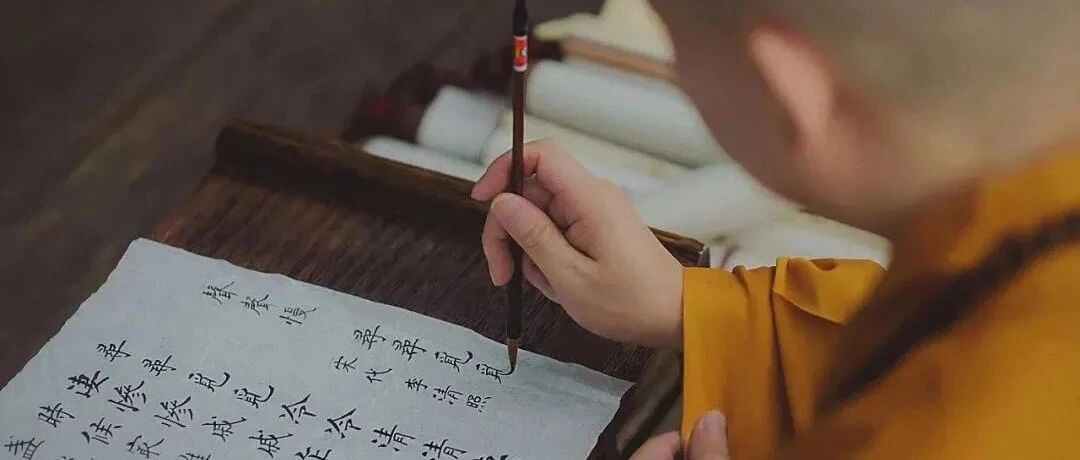 聲聲慢
尋尋覓覓
宋代 李清照
尋尋覓覓冷冷清清
淒慘慘戚戚乍
時候
盞